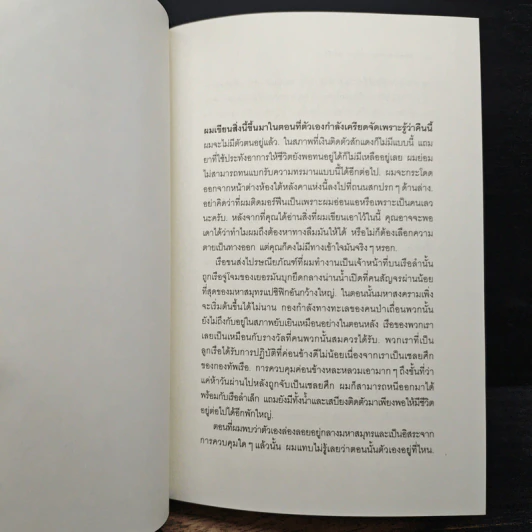 ผมเขียนสิ่งนี้ขึ้นมาในตอนที่ตัวเองกำลังเครียดจัดเพราะรู้ว่าคืนนี้
ผมจะไม่มีตัวตนอยู่แล้ว. ในสภาพที่เงินติดตัวสักแดงก็ไม่มีแบบนี้ แถม
ยาที่ใช้ประทังอาการให้ชีวิตยังพอทนอยู่ได้ก็ไม่มีเหลืออยู่เลย ผมย่อม
ไม่สามารถทนแบกรับความทรมานแบบนี้ได้อีกต่อไป. ผมจะกระโดด
ออกจากหน้าต่างห้องใต้หลังคาแห่งนี้ลงไปที่ถนนสกปรก ๆ ด้านล่าง.
อย่าคิดว่าที่ผมติดมอร์ฟีนเป็นเพราะผมอ่อนแอหรือเพราะเป็นคนเลว
นะครับ. หลังจากที่คุณได้อ่านสิ่งที่ผมเขียนเอาไว้ในนี้ คุณอาจจะพอ
เดาได้ว่าทำไมผมถึงต้องหาทางลืมมันให้ได้ หรือไม่ก็ต้องเลือกความ
ตายเป็นทางออก แต่คุณก็คงไม่มีทางเข้าใจมันจริง ๆ หรอก.
เรือขนส่งไปรษณียภัณฑ์ที่ผมทำงานเป็นเจ้าหน้าที่บนเรือลำนั้น
ถูกเรือจู่โจมของเยอรมันบุกยึดกลางน่านน้ำเปิดที่คนสัญจรผ่านน้อย
ที่สุดของมหาสมุทรแปซิฟิกอันกว้างใหญ่. ในตอนนั้นมหาสงครามเพิ่ง
จะเริ่มต้นขึ้นได้ไม่นาน กองกำลังทางทะเลของคนป่าเถื่อนพวกนั้น
ยังไม่ถึงกับอยู่ในสภาพยับเยินเหมือนอย่างในตอนหลัง เรือของพวกเรา
เลยเป็นเหมือนกับรางวัลที่คนพวกนั้นสมควรได้รับ. พวกเราที่เป็น
ลูกเรือได้รับการปฏิบัติที่ค่อนข้างดีไม่น้อยเนื่องจากเราเป็นเชลยศึก
ของกองทัพเรือ. การควบคุมค่อนข้างหละหลวมเอามาก ๆ ถึงขั้นที่ว่า
แค่ห้าวันผ่านไปหลังถูกจับเป็นเชลยศึก ผมก็สามารถหนีออกมาได้
พร้อมกับเรือลำเล็ก แถมยังมีทั้งน้ำและเสบียงติดตัวมาเพียงพอให้มีชีวิต
อยู่ต่อไปได้อีกพักใหญ่.
ตอนที่ผมพบว่าตัวเองล่องลอยอยู่กลางมหาสมุทรและเป็นอิสระจาก
การควบคุมใด ๆ แล้วนั้น ผมแทบไม่รู้เลยว่าตอนนั้นตัวเองอยู่ที่ไหน.